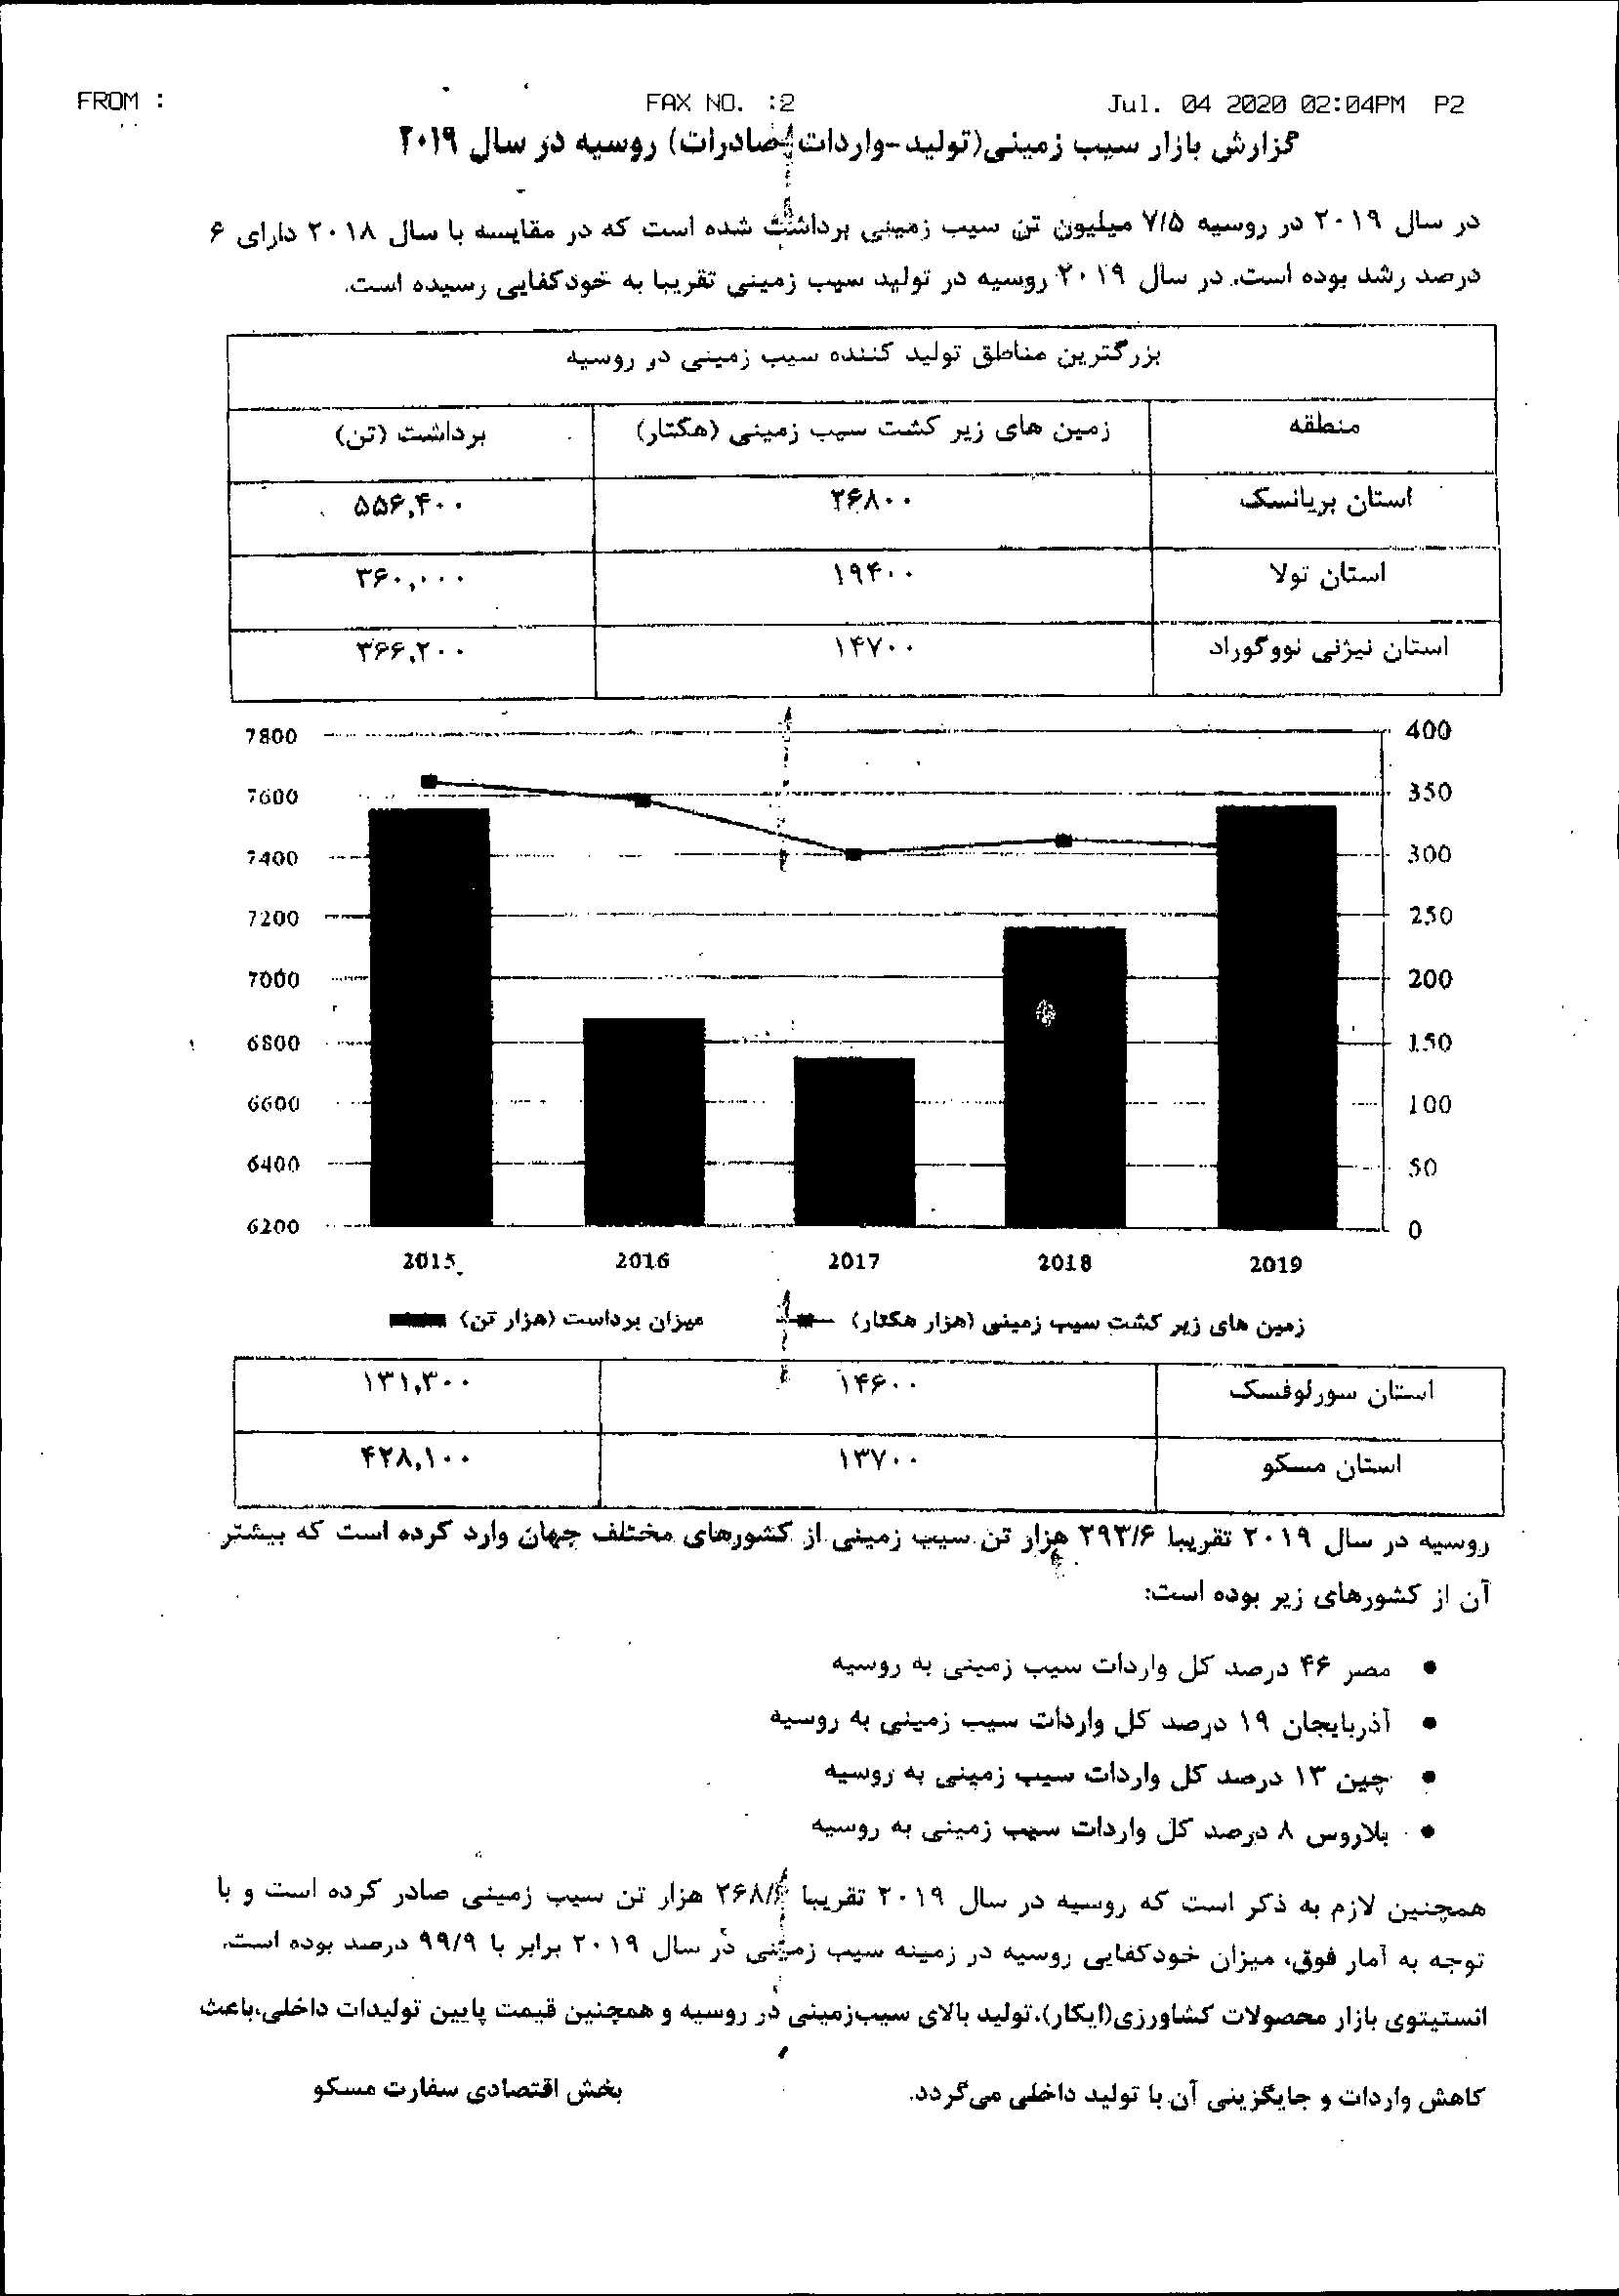 FROM :
FAX NO. :2
Jul. 04 2020 02:04PM P2
گزارش بازار سیب زمینی(تولید-واردات-صادرات) روسیه در سال ۲۰۱۹
در سال ۲۰۱۹ در روسیه ۷/۵ میلیون تن سیب زمینی برداشت شده است که در مقایسه با سال ۲۰۱۸ دارای ۶
درصد رشد بوده است. در سال ۲۰۱۹ روسیه در تولید سیب زمینی تقریبا به خودکفایی رسیده است.
بزرگترین مناطق تولید کننده سیب زمینی در روسیه
منطقه زمین های زیر کشت سیب زمینی (هکتار) برداشت (تن)
استان بریانسک ۲۶۸۰۰ ۵۵۶,۴۰۰
استان تولا ۱۹۴۰۰ ۳۶۰,۰۰۰
استان نیژنی نووگوراد ۱۴۷۰۰ ۳۶۶,۲۰۰
7800 400
7600 350
7400 300
7200 250
7000 200
6800 150
6600 100
6400 50
6200 0
2015 2016 2017 2018 2019
زمین های زیر کشت سیب زمینی (هزار هکتار) میزان برداست (هزار تن)
استان سورلوفسک ۱۴۶۰۰ ۱۳۱,۳۰۰
استان مسکو ۱۳۷۰۰ ۴۲۸,۱۰۰
روسیه در سال ۲۰۱۹ تقریبا ۲۹۳/۶ هزار تن سیب زمینی از کشورهای مختلف جهان وارد کرده است که بیشتر
آن از کشورهای زیر بوده است:
• مصر ۴۶ درصد کل واردات سیب زمینی به روسیه
• آذربایجان ۱۹ درصد کل واردات سیب زمینی به روسیه
• چین ۱۳ درصد کل واردات سیب زمینی به روسیه
• بلاروس ۸ درصد کل واردات سیب زمینی به روسیه
همچنین لازم به ذکر است که روسیه در سال ۲۰۱۹ تقریبا ۲۶۸/۶ هزار تن سیب زمینی صادر کرده است و با
توجه به آمار فوق، میزان خودکفایی روسیه در زمینه سیب زمینی در سال ۲۰۱۹ برابر با ۹۹/۹ درصد بوده است.
انستیتوی بازار محصولات کشاورزی(ایکار)،تولید بالای سیب‌زمینی در روسیه و همچنین قیمت پایین تولیدات داخلی،باعث
کاهش واردات و جایگزینی آن با تولید داخلی می‌گردد.
بخش اقتصادی سفارت مسکو